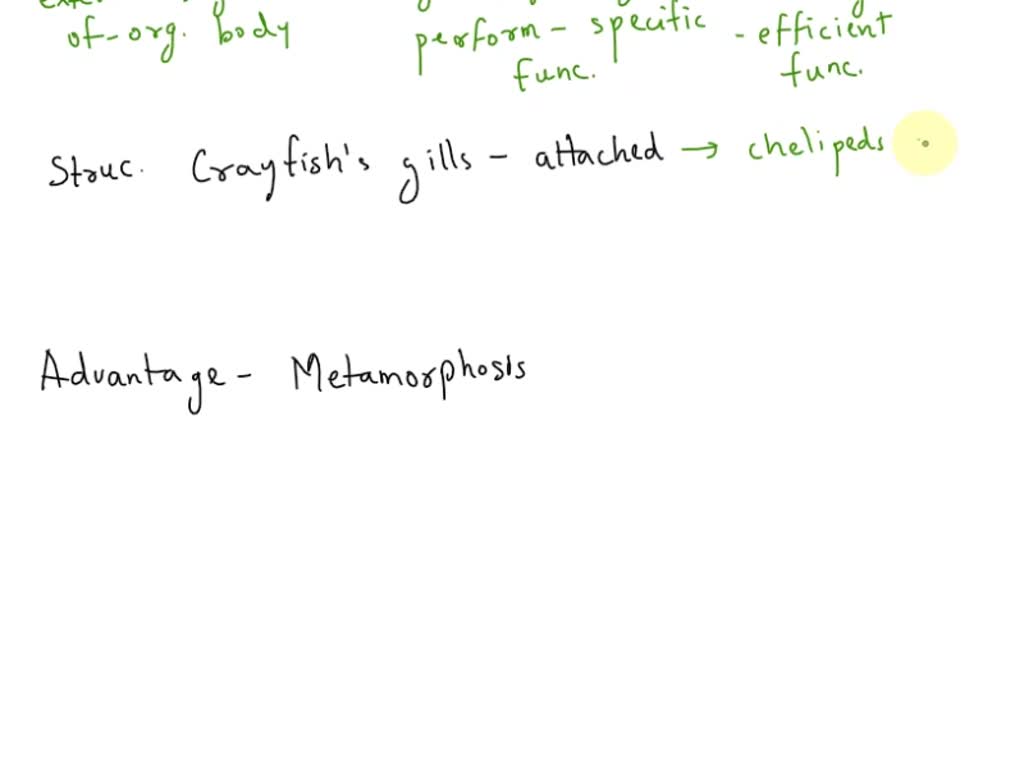 of-org. body perform - specific - efficient
func. func.
Struc. Crayfish's gills - attached → chelipeds
Advantage - Metamorphosis